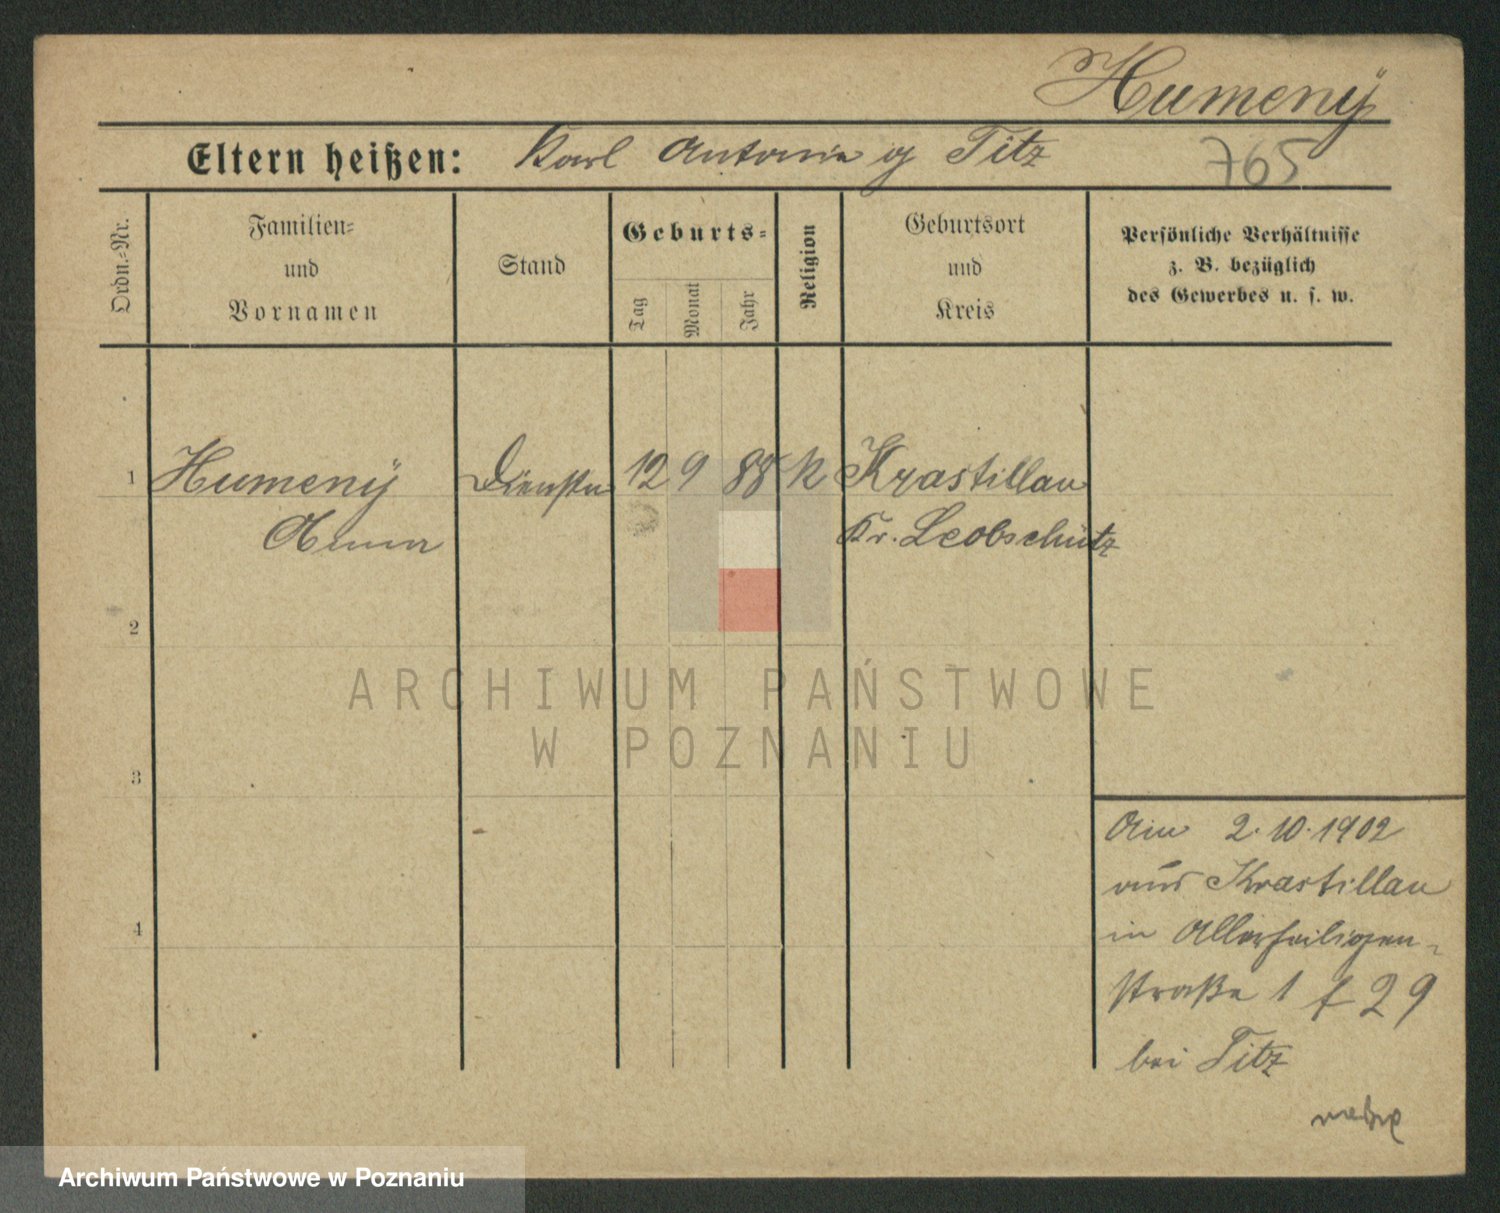 Humenÿ
Eltern heißen: Karl Antonie g Titz
765
Ordn.-Nr.
Familien-
und
Vornamen
Stand
Geburts-
Tag
Monat
Jahr
Religion
Geburtsort
und
Kreis
Persönliche Verhältnisse
z. B. bezüglich
des Gewerbes u. s. w.
1 Humenÿ Dienstm 12 9 88 k Krastillau
Anna Kr. Leobschütz
2
ARCHIWUM PAŃSTWOWE
W POZNANIU
3
Am 2.10.1902
aus Krastillau
in Allerheiligen-
4
straße 1 f 29
bei Titz
Archiwum Państwowe w Poznaniu